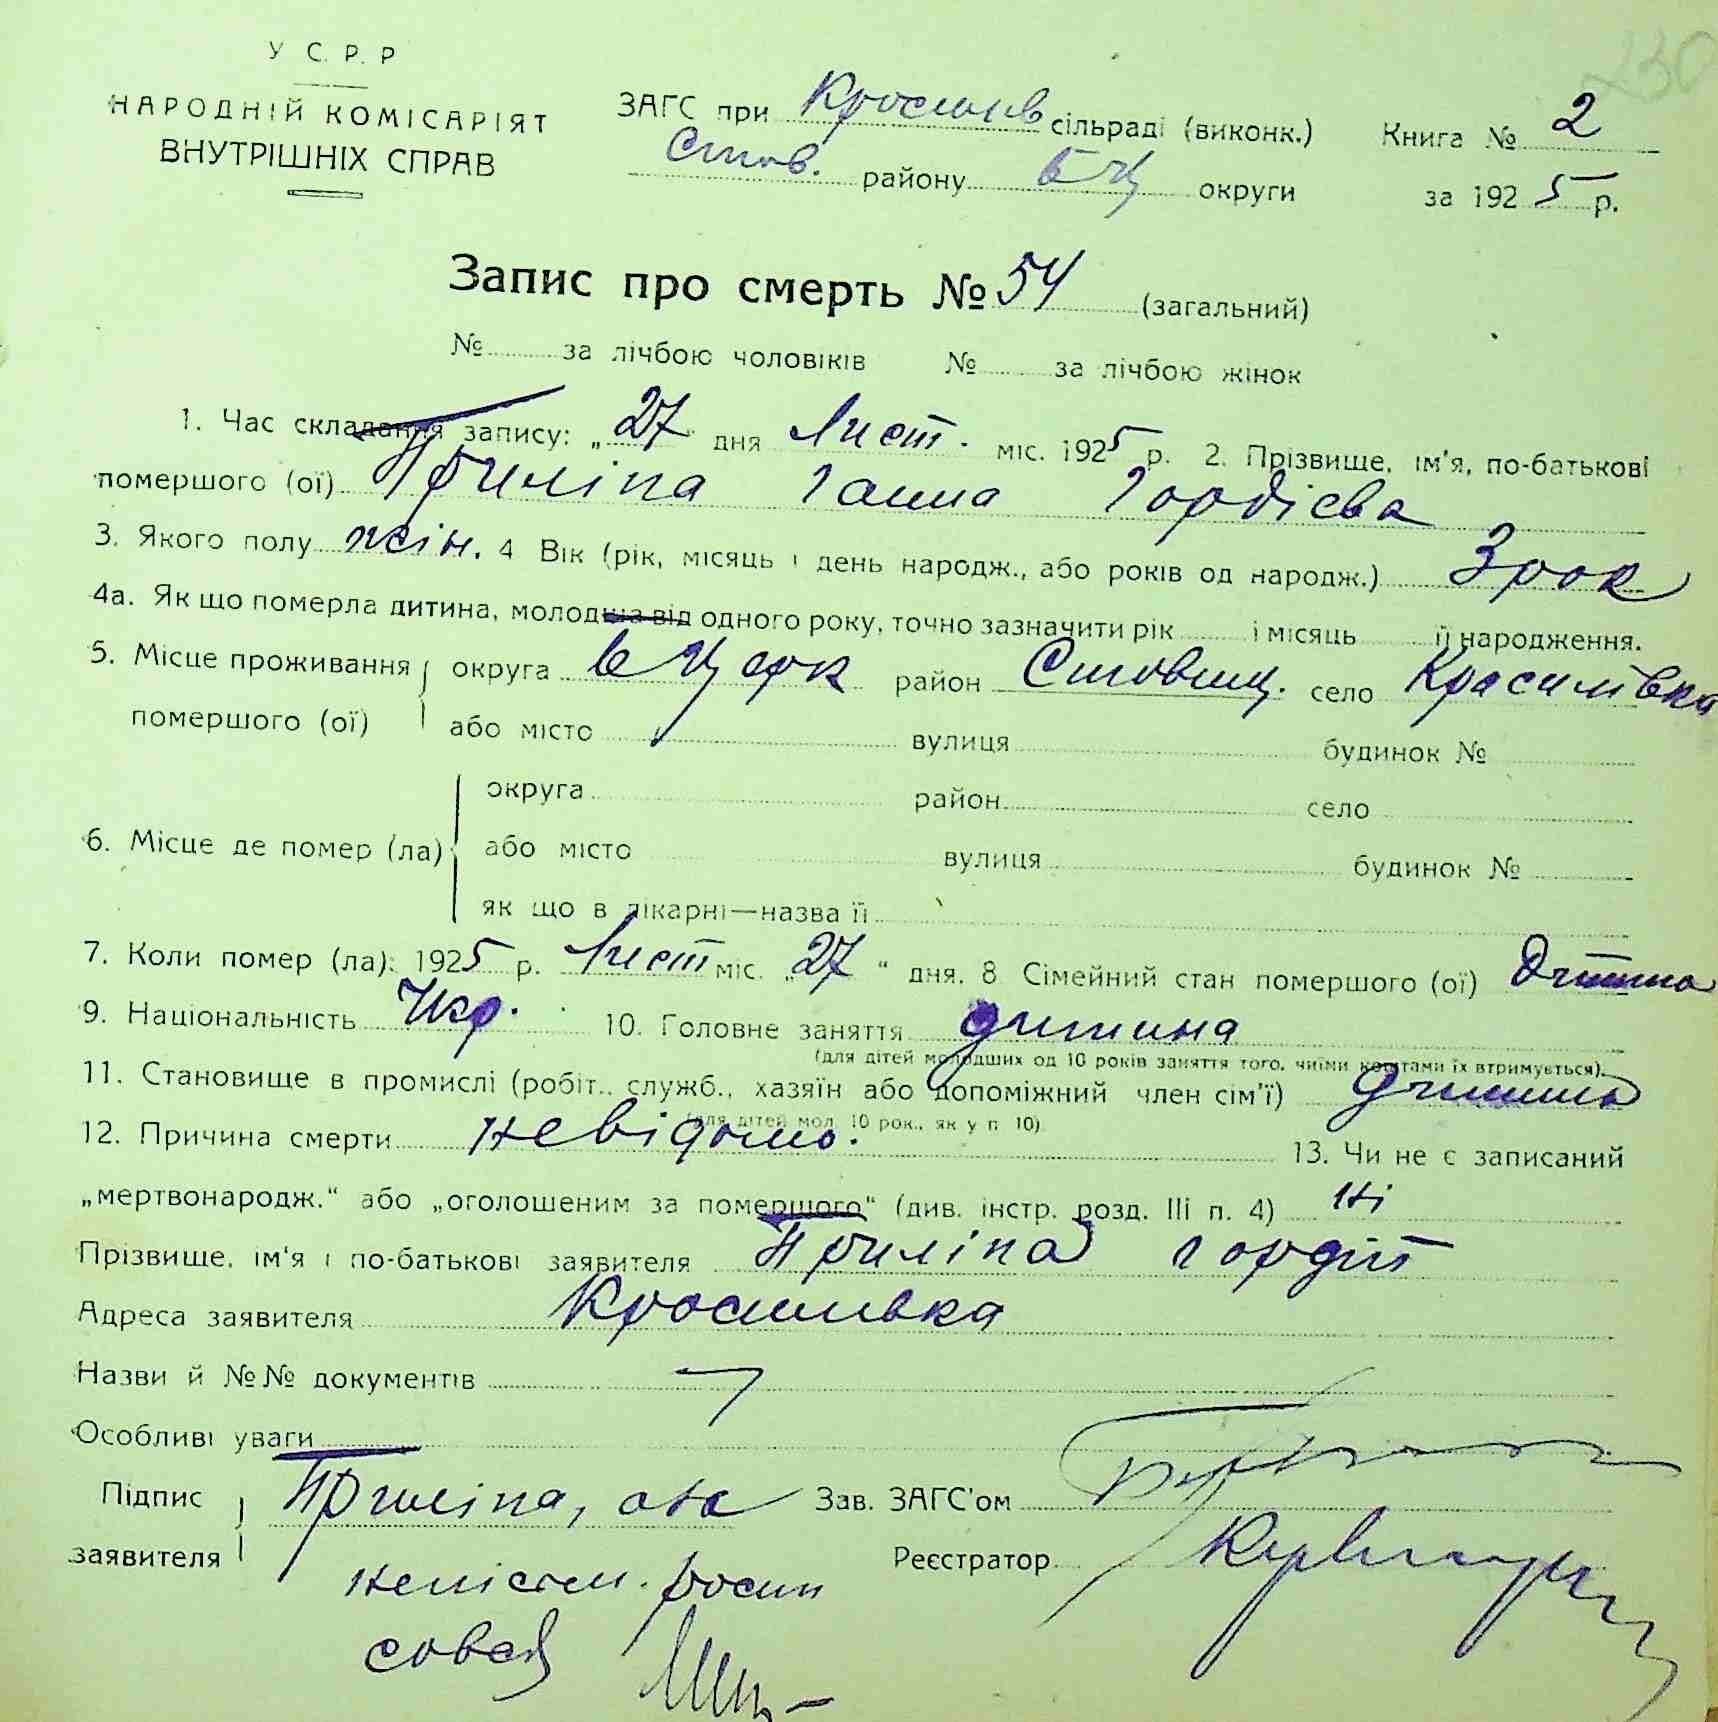 230
У С. Р. Р
НАРОДНІЙ КОМІСАРІЯТ
ВНУТРІШНІХ СПРАВ
ЗАГС при Красилів сільраді (виконк.) Книга № 2
Став. району БЦ округи за 1925 р.
Запис про смерть № 54 (загальний)
№ за лічбою чоловіків № за лічбою жінок
1. Час складання запису: „27“ дня Лист. міс. 1925 р. 2. Прізвище, ім'я, по-батькові
помершого (ої) Приліпа Ганна Гордієва
3. Якого полу жін. 4 Вік (рік, місяць і день народж., або років од народж.) 3 рок
4а. Як що померла дитина, молодша від одного року, точно зазначити рік і місяць її народження.
5. Місце проживання округа БЦерк район Ставищ. село Красилівка
помершого (ої) або місто вулиця будинок №
округа район село
6. Місце де помер (ла) або місто вулиця будинок №
як що в лікарні—назва її
7. Коли помер (ла): 1925 р. Лист міс. „27“ дня. 8 Сімейний стан помершого (ої) дитина
9. Національність Укр. 10. Головне заняття дитина
(для дітей молодших од 10 років заняття того, чиїми коштами їх втримується).
11. Становище в промислі (робіт.. служб., хазяїн або допоміжний член сім'ї) дитина
(для дітей мол. 10 рок., як у п 10)
12. Причина смерти невідомо. 13. Чи не є записаний
„мертвонародж.“ або „оголошеним за помершого“ (див. інстр. розд. III п. 4) ні
Прізвище, ім'я і по-батькові заявителя Приліпа Гордій
Адреса заявителя Красилівка
Назви й №№ документів
Особливі уваги
Підпис Приліпа, а за Зав. ЗАГС'ом
заявителя Реєстратор
неписем. росп